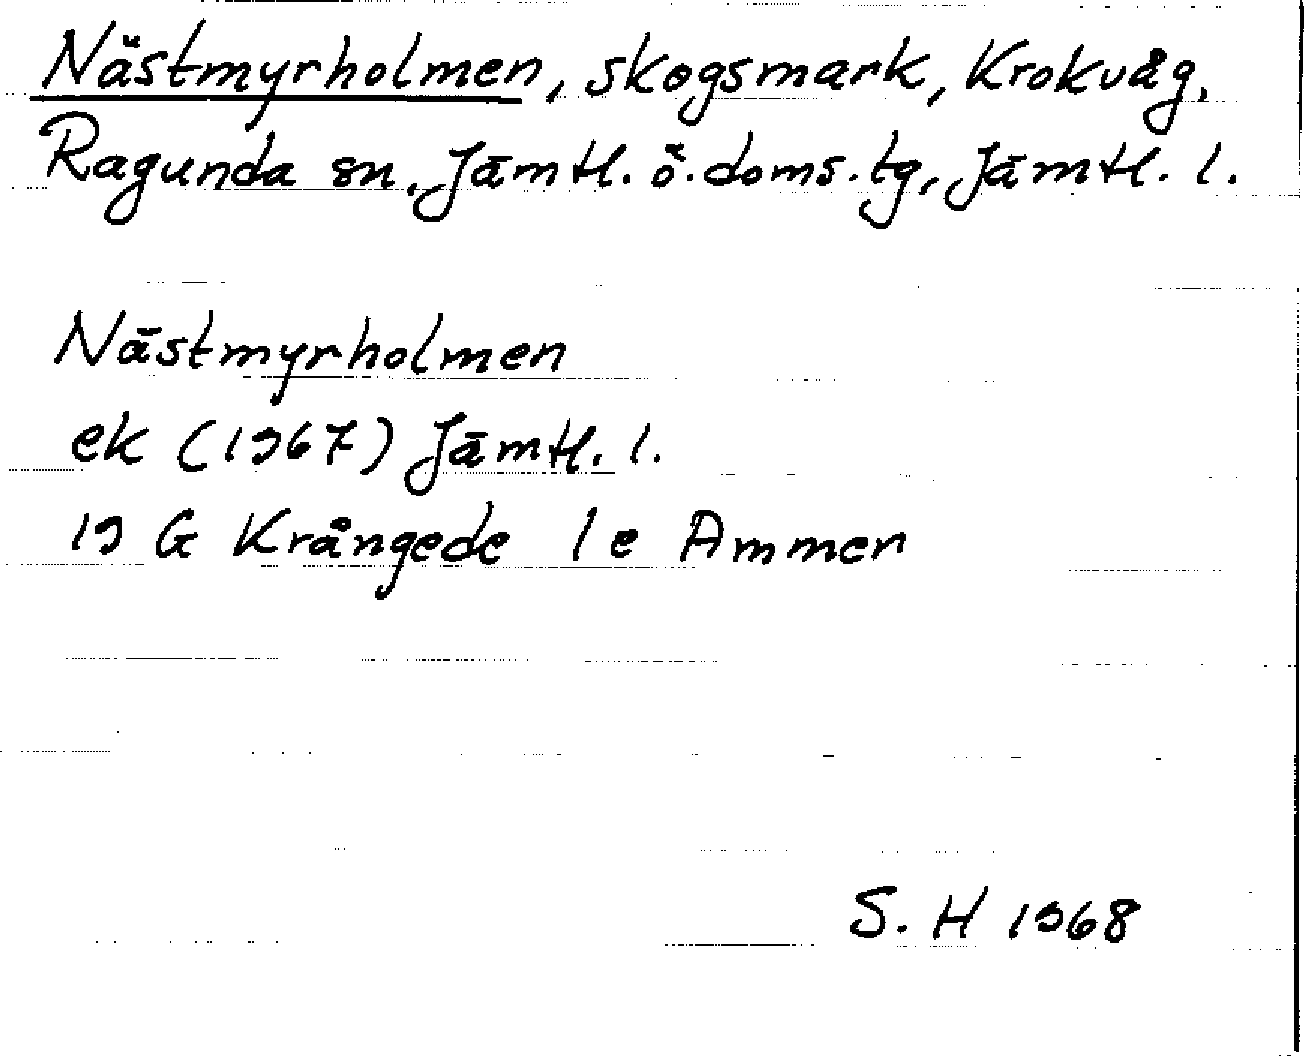 Nästmyrholmen, skogsmark, Krokvåg,
Ragunda sn, Jämtl. ö. doms. tg, Jämtl. l.
Nästmyrholmen
ek (1967) Jämtl. l.
19 G Krångede 1 e Ammen
S. H 1968